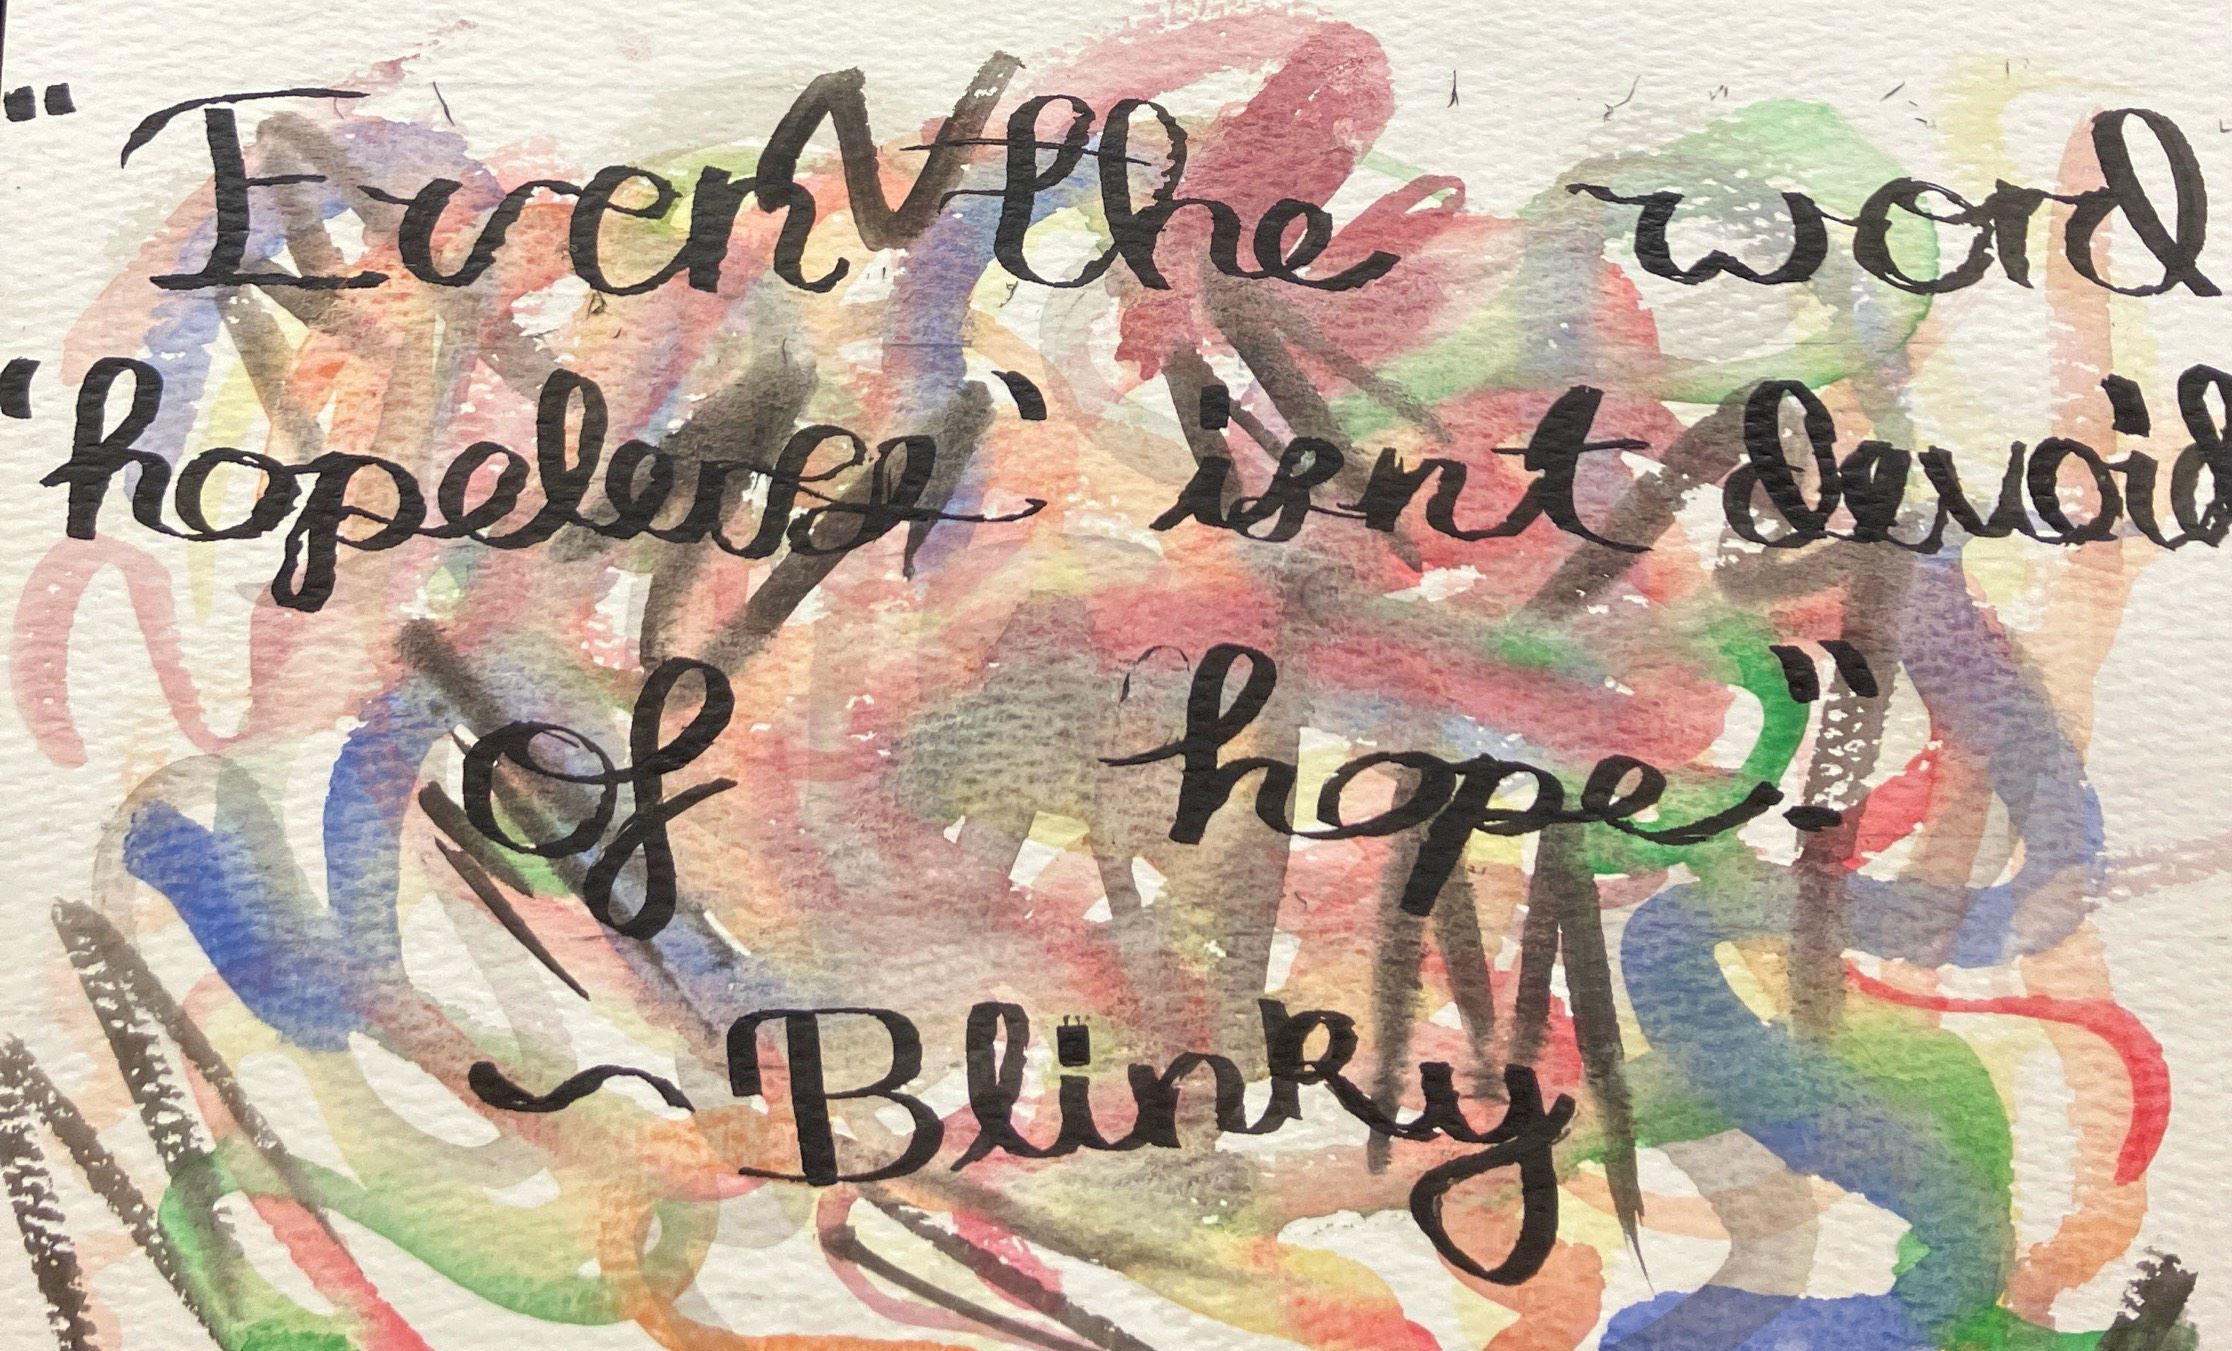 "Even the word
'hopeless' isnt devoid
of hope."
~Blinky